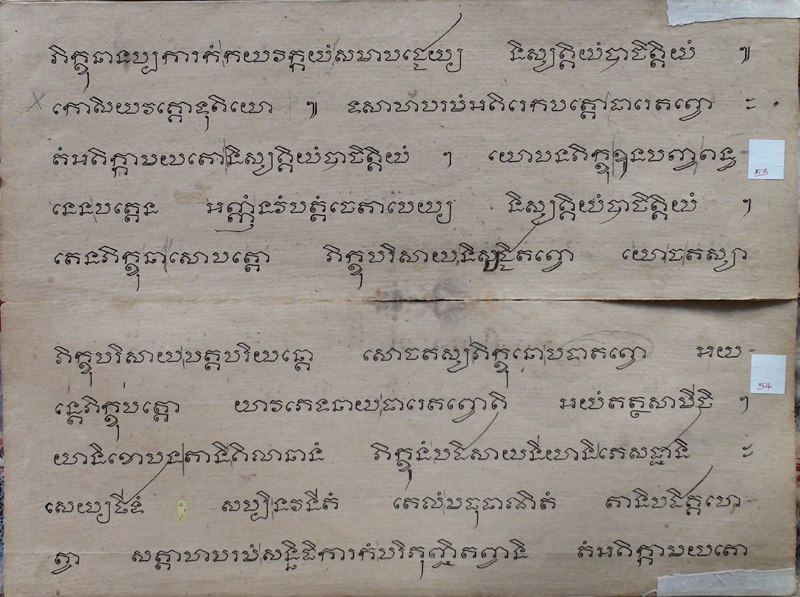 ភិក្ខុនានប្បការកំកយវិក្កយំសមាបជ្ជេយ្យ និស្សគ្គិយំបាចិត្តិយំ ៕
កោសិយវគ្គោទុតិយោ ៕ ទសាហបរមំអតិរេកបត្តោធារេតព្វោ ៈ
តំអតិក្កាមយតោនិស្សគ្គិយំបាចិត្តិយំ ៗ យោបនភិក្ខុឩនបញ្ចពន្ធ
នេនបត្តេន អញ្ញំនវំបត្តំចេតាបេយ្យ និស្សគ្គិយំបាចិត្តិយំ ៗ
53
តេនភិក្ខុនាសោបត្តោ ភិក្ខុបរិសាយនិស្សជ្ជិតព្វោ យោចតស្សា
ភិក្ខុបរិសាយបត្តបរិយន្តោ សោចតស្សភិក្ខុនោបទាតព្វោ អយ
54
ន្តេភិក្ខុបត្តោ យាវភេទនាយធារេតព្វោតិ អយំតត្ថសាមីចិ ៗ
យានិខោបនតានិគិលានានំ ភិក្ខូនំបដិសាយនីយានិភេសជ្ជានិ ៈ
សេយ្យថីទំ សប្បិនវនីតំ តេលំមធុផាណិតំ តានិបដិគ្គហេ
ត្វា សត្តាហបរមំសន្និធិការកំបរិភុញ្ជិតព្វានិ តំអតិក្កាមយតោ